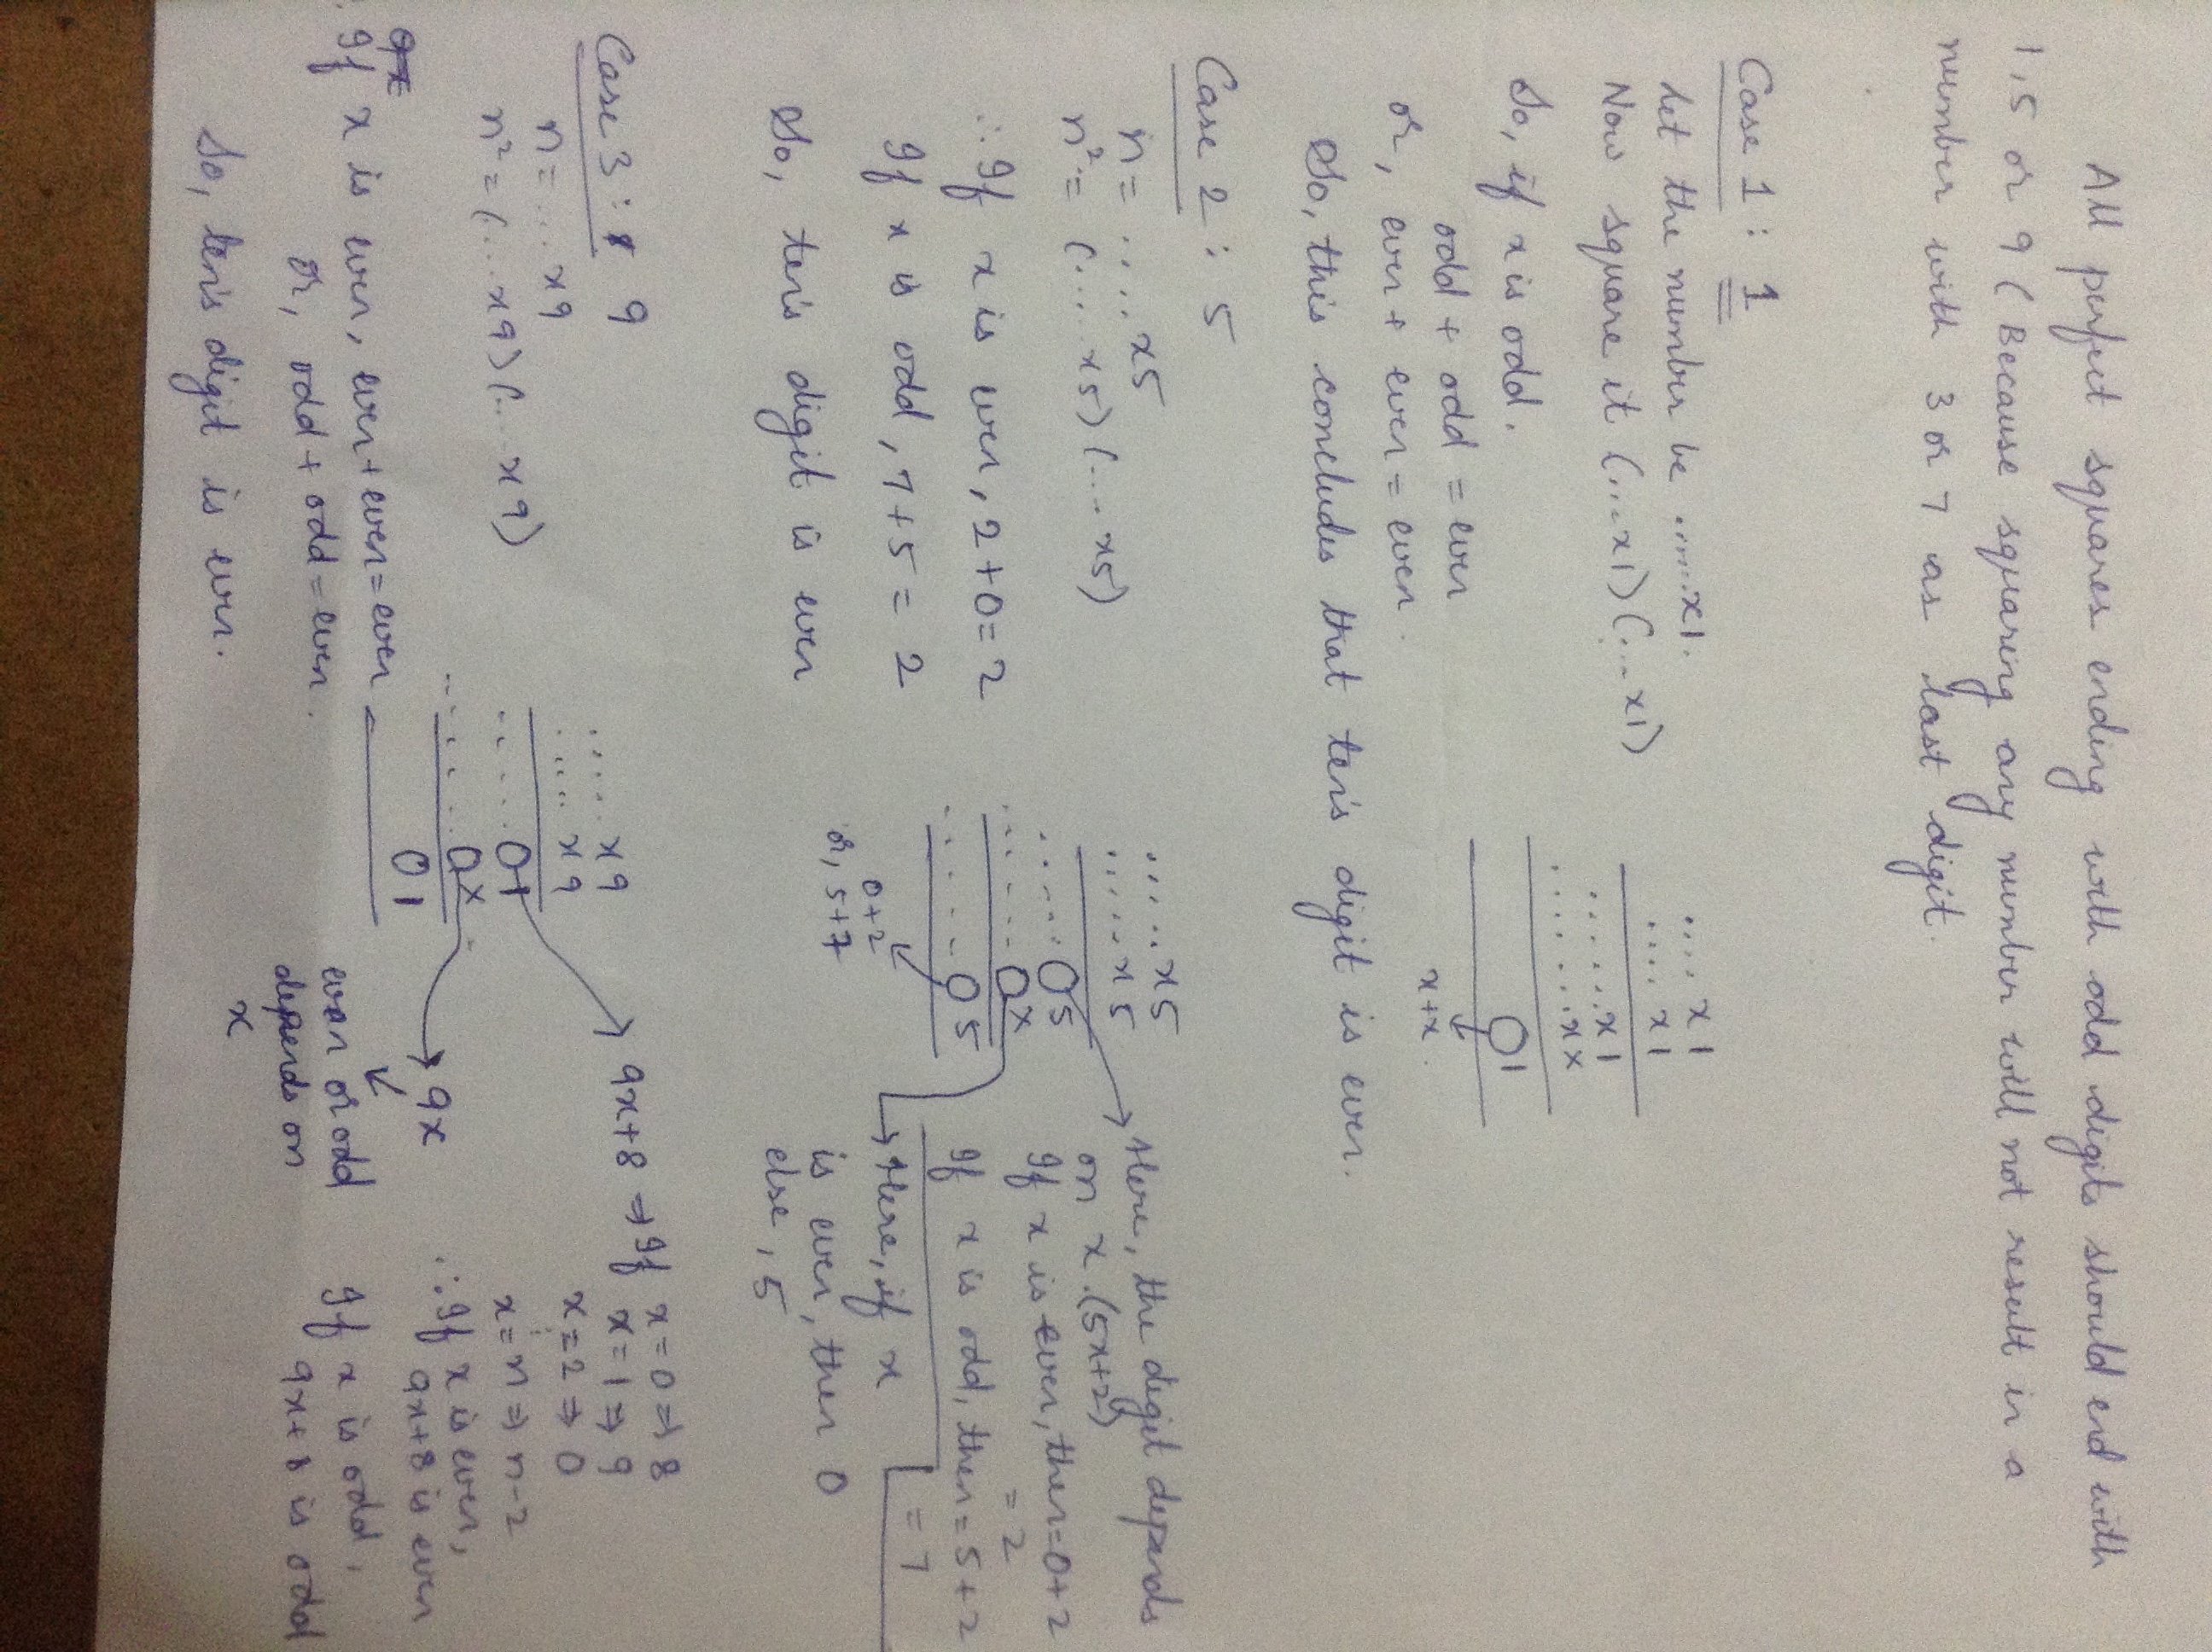 All perfect squares ending with odd digits should end with
1, 5 or 9 (Because squaring any number will not result in a
number with 3 or 7 as last digit.
Case 1 : 1
Let the number be ......x1.
Now square it (...x1)(...x1)
So, if x is odd.
odd + odd = even
or, even + even = even.
.... x1
.... x1
......x1
......xx
01
x+x.
So, this concludes that ten's digit is even.
Case 2 : 5
n = .....x5
n² = (....x5)(....x5)
∴ If x is even, 2+0=2
If x is odd, 7+5=2
So, ten's digit is even
.....x5
....x5
.....05
.....0x
.....05
0+2
or, 5+7
Here, the digit depends
on x.(5x+2)
If x is even, then=0+2
=2
If x is odd, then=5+2
=7
Here, if x
is even, then 0
else, 5
Case 3 : 9
n = ...x9
n² = (...x9)(...x9)
If x is even, even+even=even
or, odd+odd=even.
So, ten's digit is even.
.....x9
....x9
.....01
.....0x
01
9x+8 ⇒ If x=0⇒8
x=1⇒9
x=2⇒0
x=n⇒n-2
∴ If x is even,
9x+8 is even
If x is odd,
9x+8 is odd
9x
even or odd
depends on
x